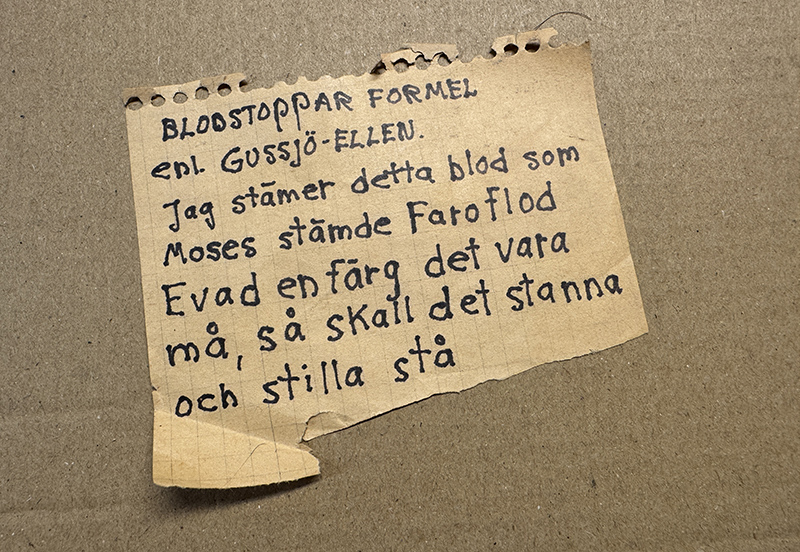 BLODSTOPPAR FORMEL
enl. GUSSJÖ-ELLEN.
Jag stämer detta blod som
Moses stämde Faroflod
Evad en färg det vara
må, så skall det stanna
och stilla stå